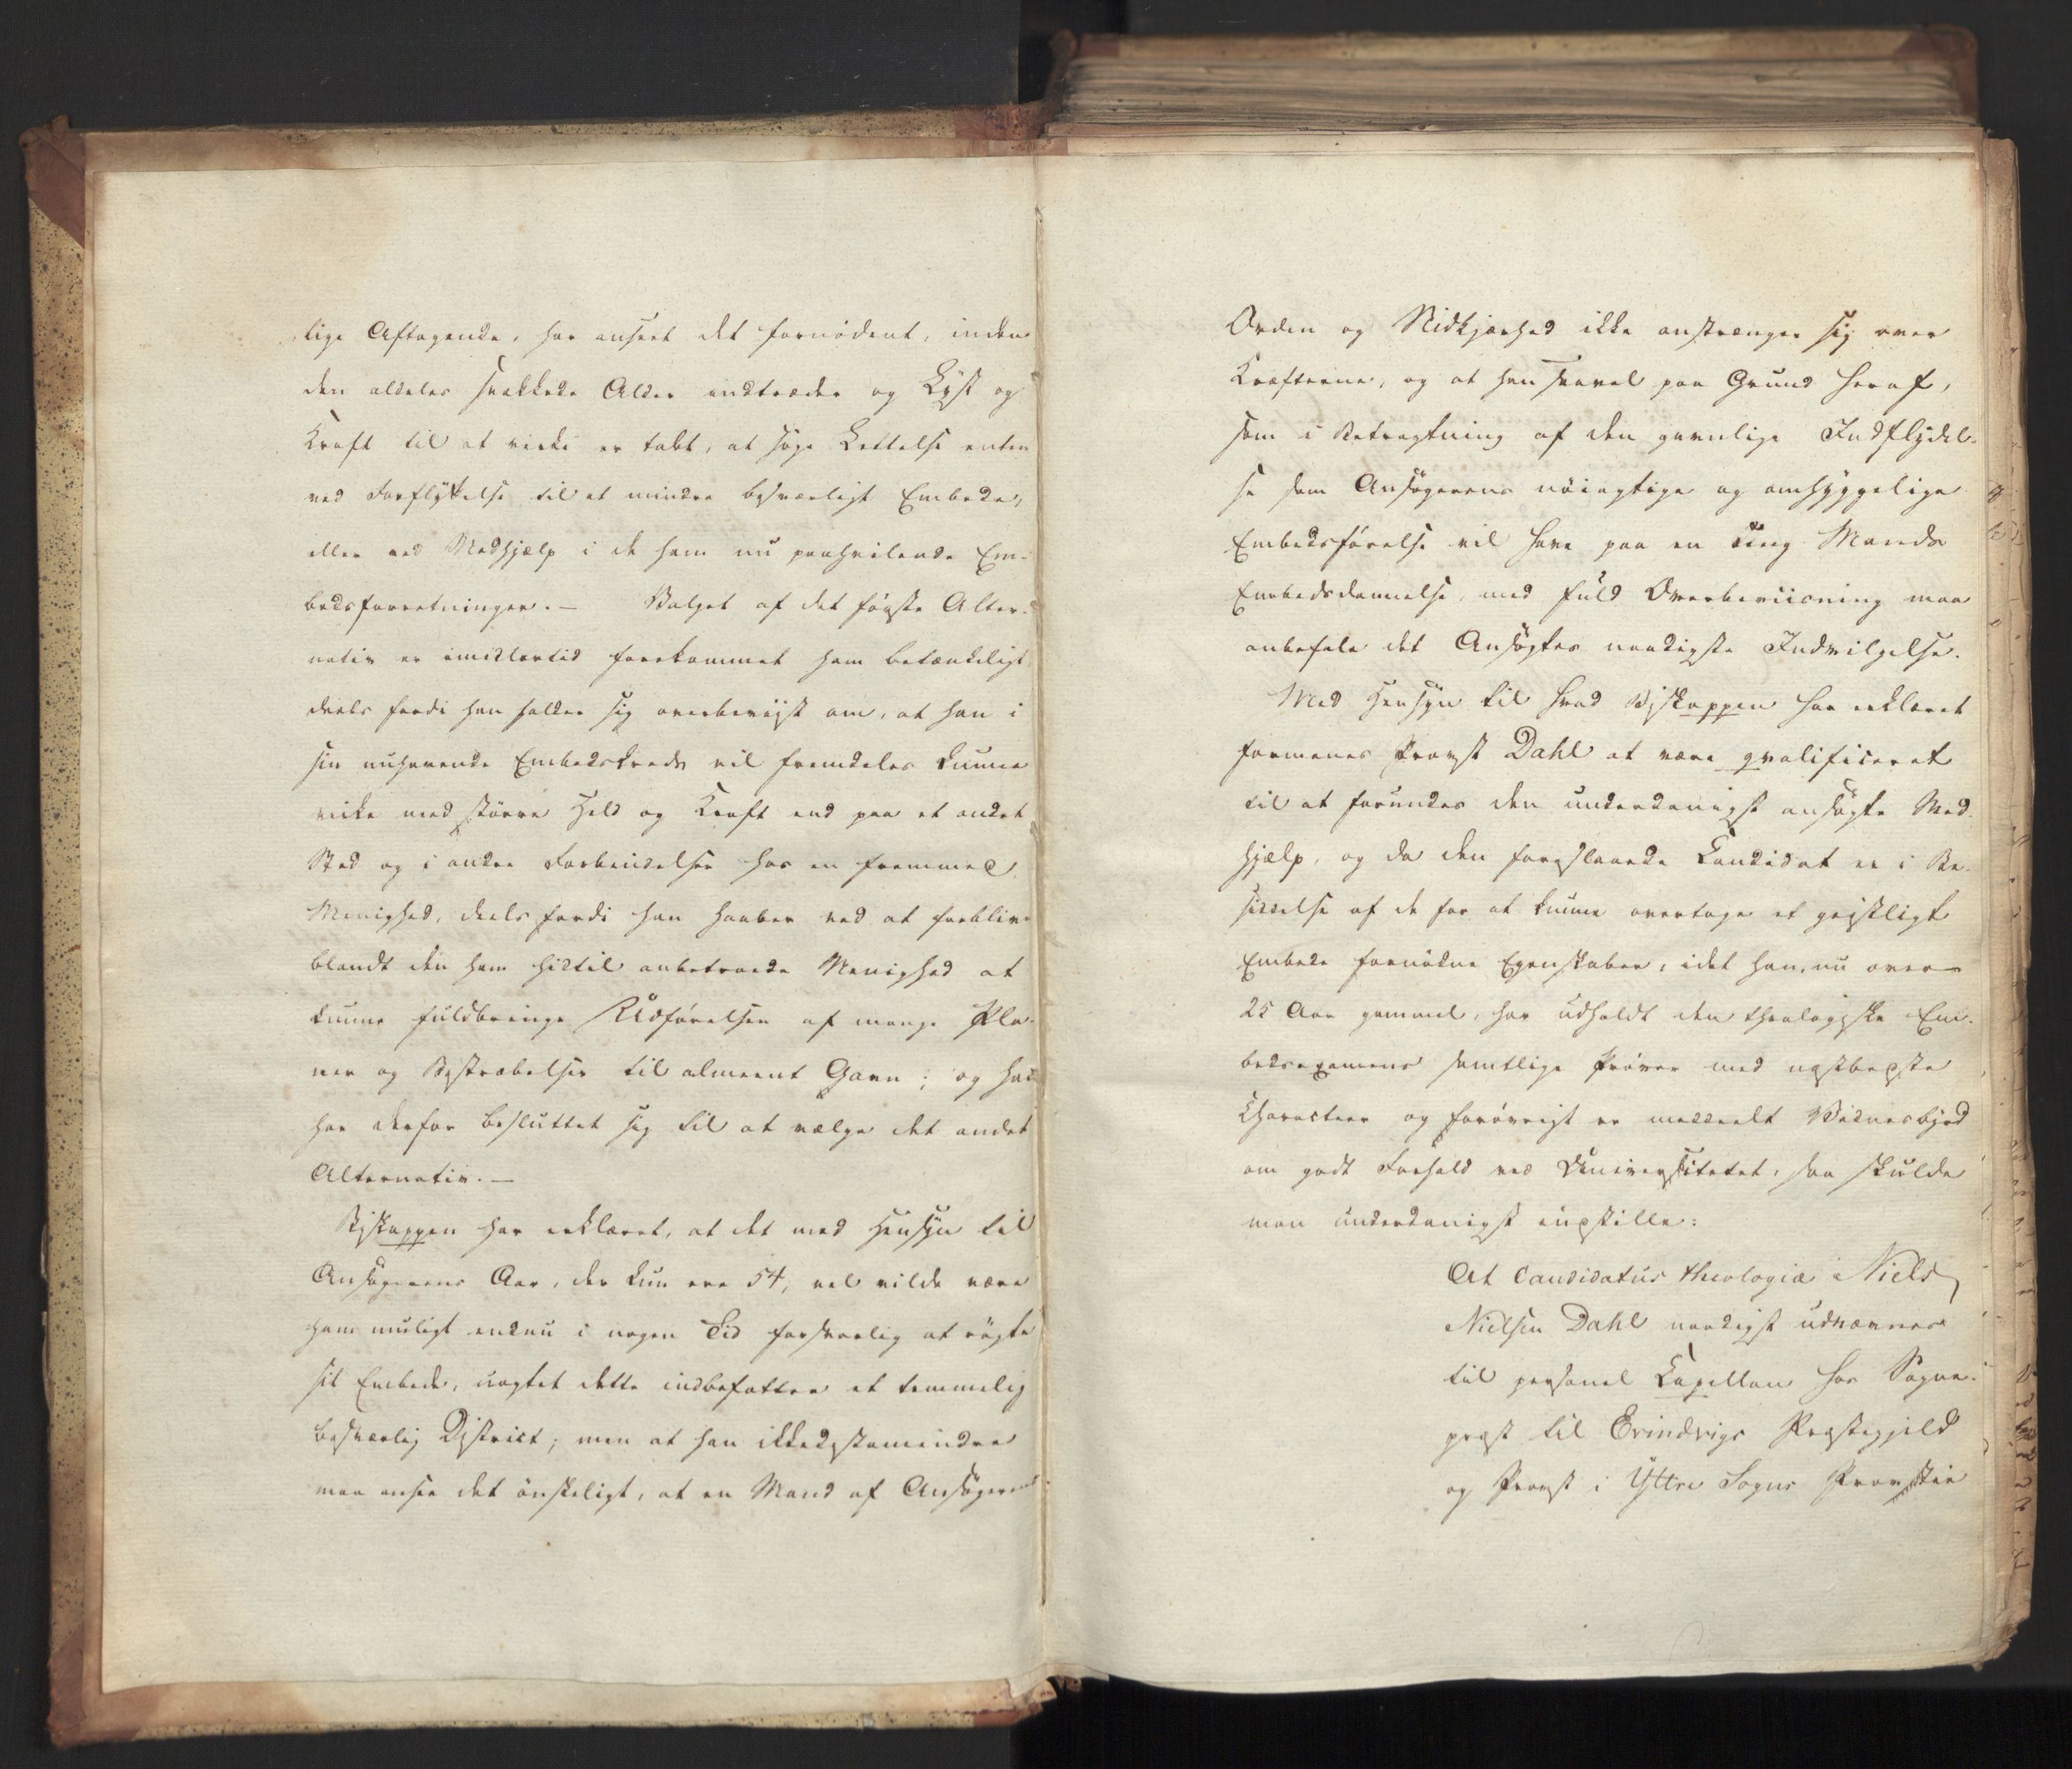 lige Aftagende, har anseet det fornödent, inden
den aldeles svækkede Alder indtræder og Lyst og
Kraft til at virke er tabt, at söge Lettelse enten
ved Forflyttelse til et mindre besværligt Embede,
eller ved Medhjælp i de ham nu paahvilende Em-
bedsforretninger. — Valget af det förste Alter-
nativ er imidlertid forekommet ham betænkeligt,
deels fordi han holder sig overbeviist om, at han i
sin nuhavende Embedskreds vil fremdeles kunne
virke med större Held og Kraft end paa et andet
Sted og i andre Forbindelser hos en fremmed
Menighed, deels fordi han haaber ved at forblive
blandt den ham hidtil anbetroede Menighed at
kunne fuldbringe Udförelsen af mange Pla-
ner og Bestræbelser til almeent Gavn; og han
har derfor besluttet sig til at vælge det andet
Alternativ. —
Biskoppen har erklæret, at det med Hensyn til
Ansögerens Aar, der kun ere 54, vel vilde være
ham muligt endnu i nogen Tid forsvarlig at rögte
sit Embede, uagtet dette indbefatter et temmelig
besværlig District; men at han ikkedestomindre
maa ansee det önskeligt, at en Mand af Ansögerens
Orden og Nidkjærhed ikke anstrænger sig over
Kræfterne, og at han saavel paa Grund heraf,
som i Betragtning af den gavnlige Indflydel-
se som Ansögerens nöiagtige og omhyggelige
Embedsförelse vil have paa en ung Mands
Embedsdannelse, med fuld Overbeviisning maa
anbefale det Ansögtes naadigste Indvilgelse.
Med Hensyn til hvad Biskoppen har erklæret
formenes Provst Dahl at være qvalificeret
til at forundes den underdanigst ansögte Med-
hjælp, og da den foreslaaede Candidat er i Be-
siddelse af de for at kunne overtage et geistligt
Embede fornödne Egenskaber, idet han, nu over
25 Aar gammel, har udholdt den theologiske Em-
bedsexamens samtlige Pröver med næstbedste
Characteer og foróvrigt er meddeelt Vidnesbyrd
om godt Forhold ved Universitetet, saa skulde
man underdanigst indstille:
At Candidatus theologiæ Niels
Nielsen Dahl naadigst udnævnes
til personel Capellan hos Sogne-
præst til Evindvigs Præstegjeld
og Provst i Yttre Sogns Provstie